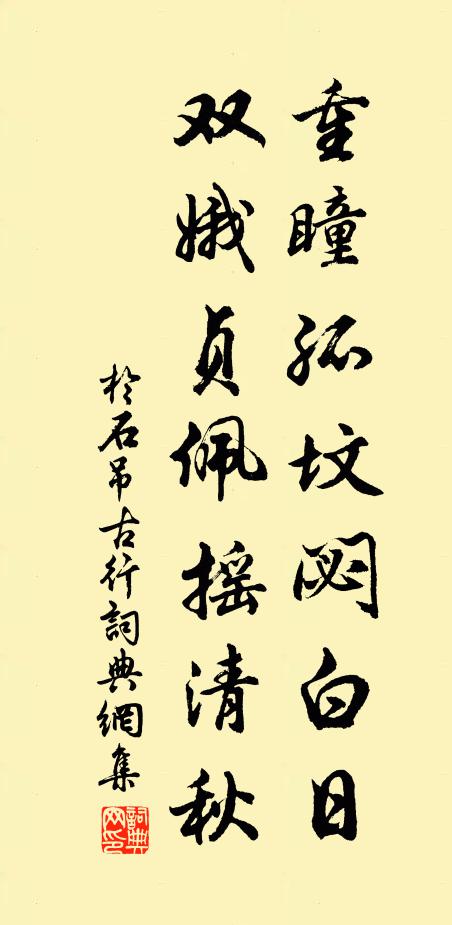 重瞳孤坟闷白日
双娥贞佩摇清秋
於石吊古行詞典網集
詞典网印